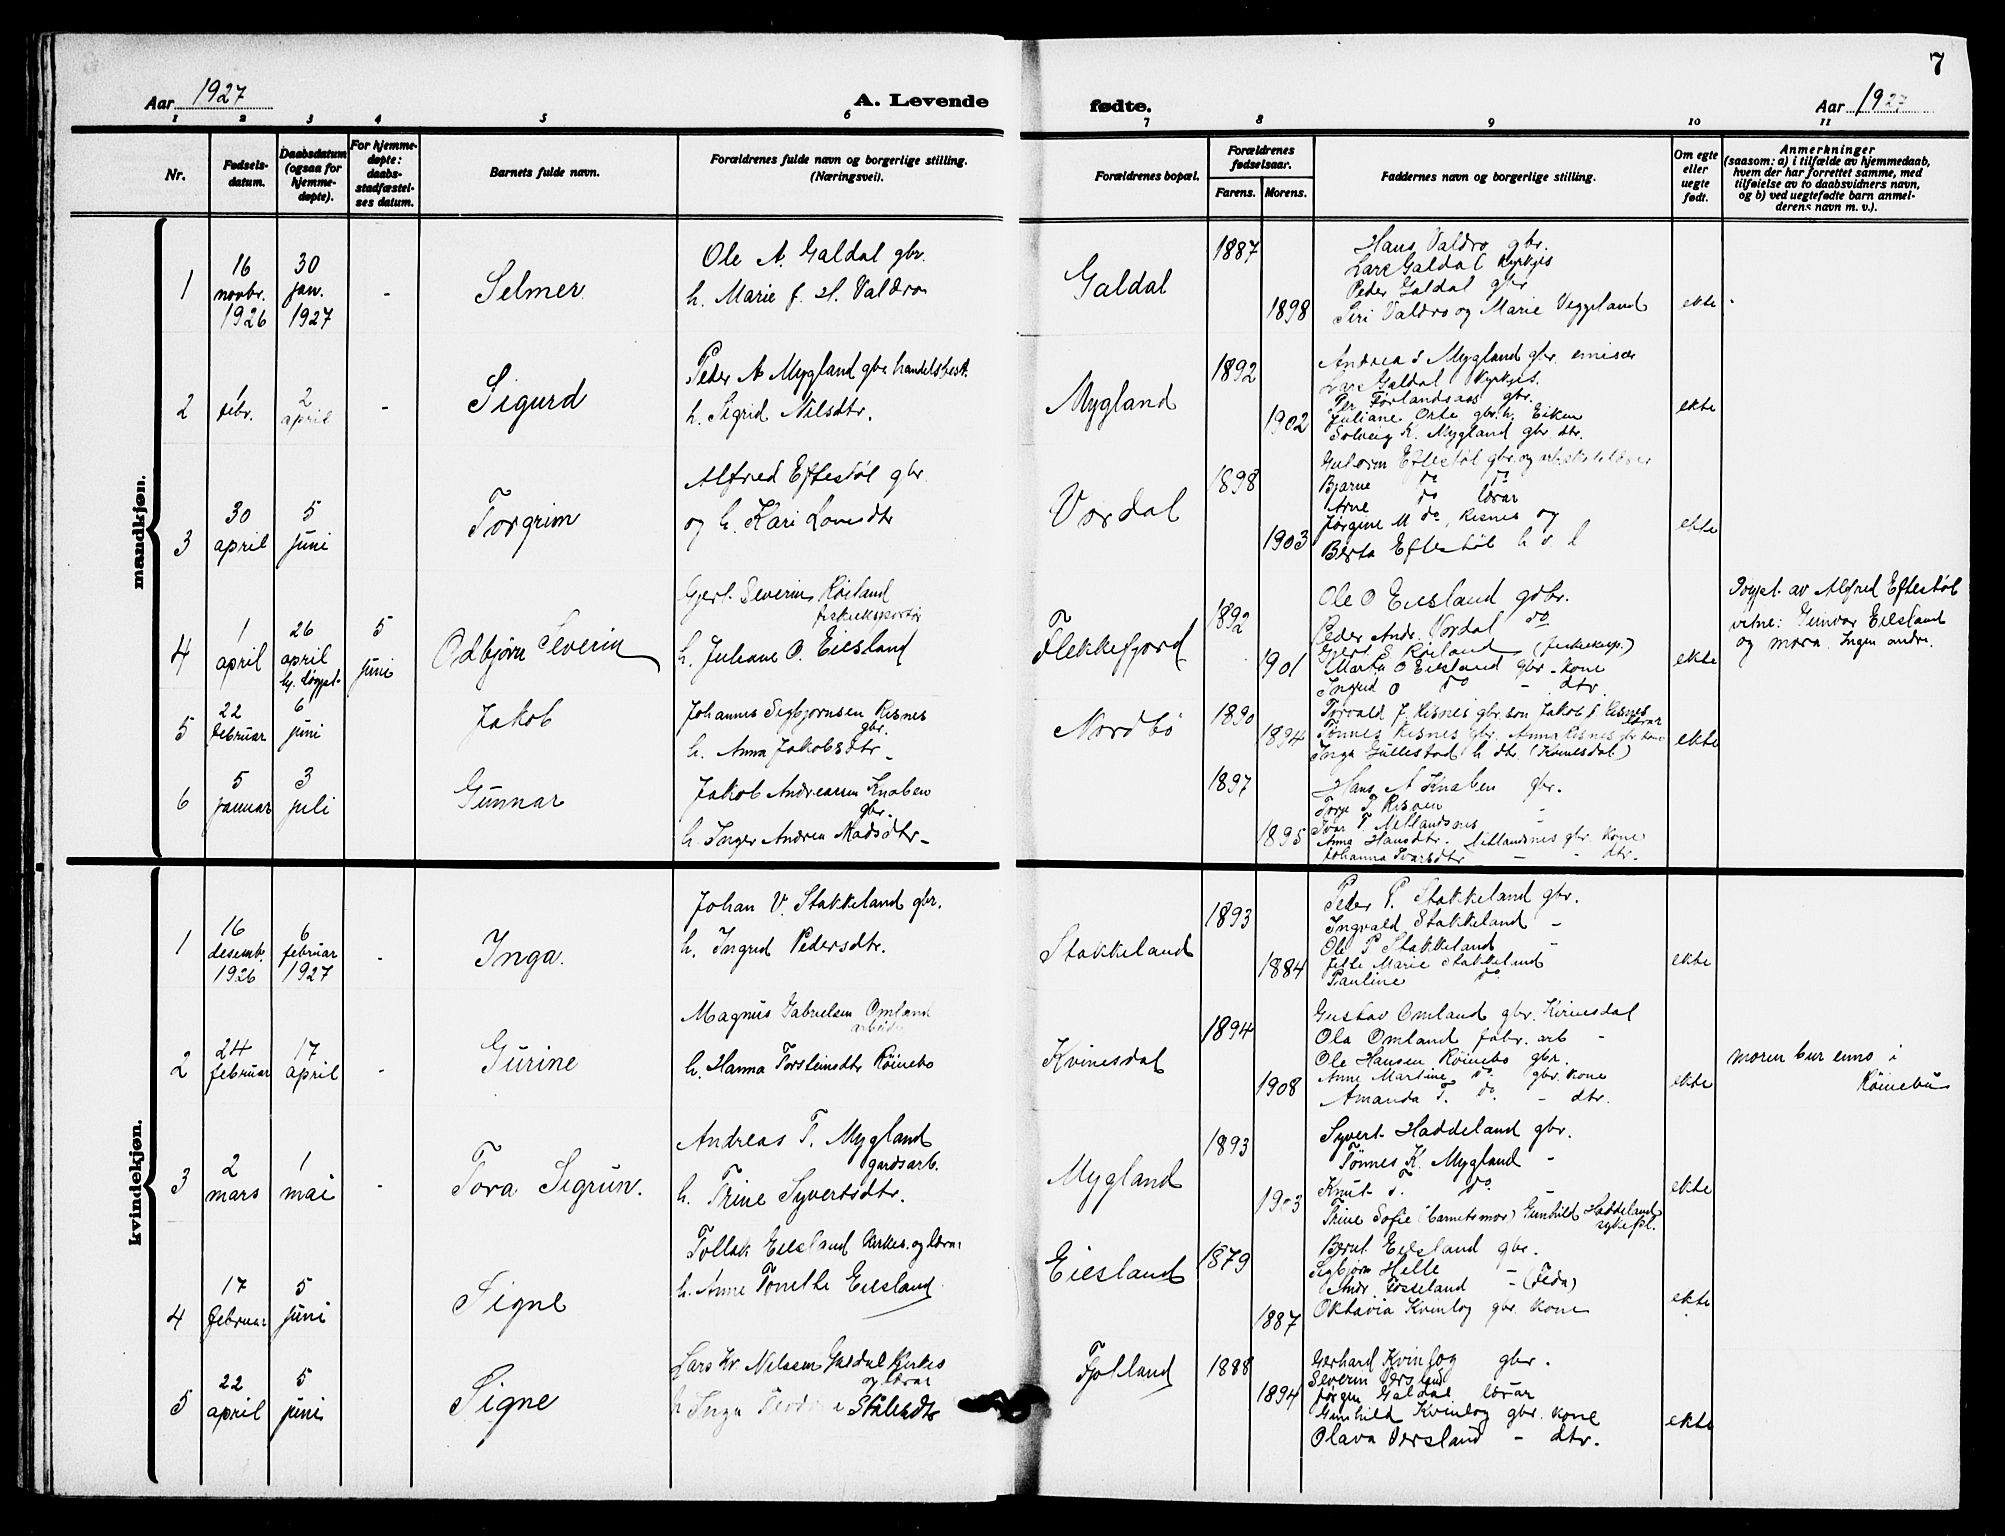 7
Aar 1927
A. Levende
fødte.
Aar 1927
1 2 3 4 5 6 7 8 9 10 11
Nr.
Fødsels-
datum.
Daabsdatum
(ogsaa for
hjemme-
døpte).
For hjemme-
døpte:
daabs-
stadfæstel-
ses datum.
Barnets fulde navn.
Forældrenes fulde navn og borgerlige stilling.
(Næringsvei).
Forældrenes bopæl.
Forældrenes
fødselsaar.
Farens. Morens.
Faddernes navn og borgerlige stilling.
Om egte
eller
uegte
født.
Anmerkninger
(saasom: a) i tilfælde av hjemmedaab,
hvem der har forrettet samme, med
tilføielse av to daabsvidners navn,
og b) ved uegtefødte barn anmel-
derens navn m. v.).
mandkjøn.
1
16
novbr.
1926
30
jan.
1927
-
Selmer
Ole A. Galdal gbr.
h. Marie f. H. Valdro
Galdal
1887
1898
Hans Valdro gbr.
Lars Galdal kyrkjes
Peder Galdal gbr
Siri Valdro og Marie Veggeland
ekte
2
1
febr.
2
april
-
Sigurd
Peder A Mygland gbr handelsbest.
h. Sigrid Nilsdtr.
Mygland
1892
1902
Andrea S Mygland gbr. emisær
Lars Galdal kyrkjes.
Per Førlandsaas gbr.
Juliane Orte gbr. h. Eiken
Solveig K. Mygland gbr. dtr.
ekte
3
30
april
5
juni
Torgrim
Alfred Eftestøl gbr
og h. Kari Lovisdtr
Vordal
1898
1903
Gutorm Eftestøl gbr. og
Bjarne do do
Arne do lærar
Jørgine M do, Risnes og
Berta Eftestøl
ekte
4
1
april
26
april
hj. døypt
5
juni
Odbjørn Severin
Gjert Severin Røiland
fiskeeksportør
h. Juliane O. Eiesland
Flekkefjord
1892
1901
Ole O Eiesland gbr.
Peder Andr. Vordal do
Gjert S Røiland (fiskeeksp.)
Marta O Eiesland gbr. kone
Ingrid O do - dtr.
ekte
Døypt av Alfred Eftestøl
vitne: Gunvor Eiesland
og mora. Ingen andre.
5
22
februar
6
juni
Jakob
Johannes Sigbjørnsen Risnes
gbr.
h. Anna Jakobsdtr -
Nordbø
1890
1894
Torvald J. Risnes gbr. son Jakob S. Risnes
lærar
Tønnes Risnes gbr. Anna Risnes gbr kone
Inga Gullestad h. dtr. (Kvinesdal)
ekte
6
5
januar
3
juli
Gunnar
Jakob Andreassen Knaben
gbr.
h. Inger Andrea Madsdtr -
1897
1895
Hans A Knaben gbr.
Torje T Risnes -
Ivar T. Netlandsnes -
Anna Hansdtr. Netlandsnes gbr kone
Johanna Ivarsdtr - - dtr.
kvindekjøn.
1
16
desemb.
1926
6
februar
1927
-
Inga.
Johan V. Stakkeland gbr.
h. Ingrid Pedersdtr.
Stakkeland
1893
1884
Peder P. Stakkeland gbr.
Ingvald Stakkeland -
Ole P Stakkeland -
Jette Marie Stakkeland
Pauline do
ekte
2
24
februar
17
april
-
Gurine
Magnus Gabrielsen Omland
arbeider
h. Hanna Torsteinsdtr Røinebø
Kvinesdal
1894
1908
Gustav Omland gbr. Kvinesdal
Ola Omland fabr. arb -
Ole Hansen Røinebø gbr.
Anne Martine do gbr. kone
Amanda T. do. - dtr.
ekte
moren bur enno i
Røinebø
3
2
mars
1
mai
-
Tora Sigrun.
Andreas T. Mygland
gardsarb.
h. Trine Syvertsdtr.
Mygland
1893
1903
Syvert Haddeland gbr.
Tønnes K. Mygland -
Knut T. do
Trine Sofie (barnets mor) Gunhild Haddeland
sykepl.
ekte
4
17
februar
5
juni
Signe
Tollak Eiesland kirkes. og lærar
h. Anne Tonette Eiesland
Eiesland
1879
1887
Bernt Eiesland gbr.
Sigbjørn Helle -
Andr. Fosseland - (Feda)
Oktavia Kvinlog gbr. kone
ekte
5
22
april
5
juni
Signe
Lars Kr Nilssen Galdal Kirkes
og lærar
h Inga
Fjotland
1888
1894
Gerhard Kvinlog gbr.
Severin Versland
Jørgen Galdal lærar
Gunhild Kvinlog gbr. kone
Olava Versland - dtr.
ekte